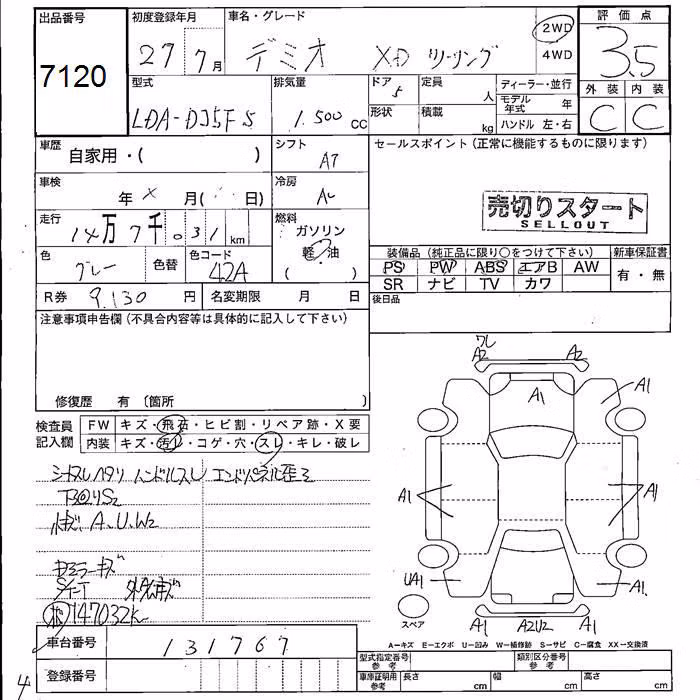 出品番号
7120
初度登録年月
27 7月
車名・グレード
デミオ XD ツーリング
2WD
4WD
評価点
3.5
外装 内装
C C
型式
LDA-DJ5FS
排気量
1.500 cc
ドア
5
形状
定員
人
積載
kg
ディーラー・並行
モデル年式 年
ハンドル 左・右
車歴
自家用・( )
シフト
AT
セールスポイント (正常に機能するものに限ります)
車検
年 X 月( 日)
冷房
AC
売切りスタート
SELLOUT
走行
14万7千031km
燃料
ガソリン
軽油
( )
色
グレー
色替
色コード
42A
装備品 (純正品に限り○をつけて下さい)
PS PW ABS エアB AW
SR ナビ TV カワ
新車保証書
有・無
R券 9.130 円
名変期限 月 日
後日品
注意事項申告欄 (不具合内容等は具体的に記入して下さい)
修復歴 有 〔箇所 〕
検査員
記入欄
FW キズ・飛石・ヒビ割・リペア跡・X要
内装 キズ・汚レ・コゲ・穴・スレ・キレ・破レ
シートスレヘタリ ハンドルスレ エンドパネル歪ミ
下回りS2
A.U.W2
147032k
ワレ
A2 A2
A1 A1
A1 A1
UA1 A1
A1 A2U2 A1
スペア
A=キズ E=エクボ U=凹み W=補修跡 S=サビ C=腐食 XX=交換済
車台番号
131767
登録番号
型式指定番号
参考
類別区分番号
参考
車庫証明用
参考
長さ cm
幅 cm
高さ cm
4